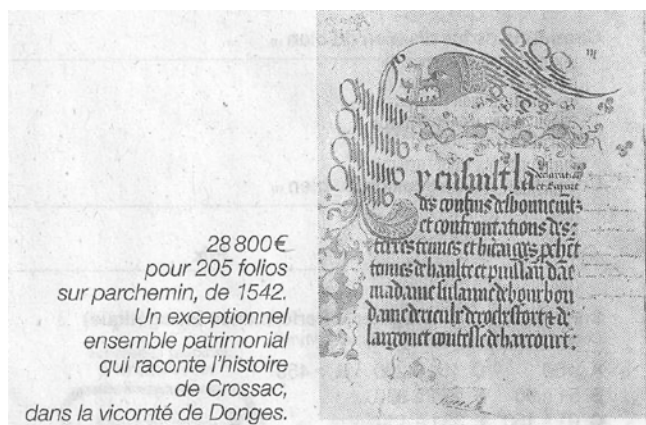 28 800 €
pour 205 folios
sur parchemin, de 1542.
Un exceptionnel
ensemble patrimonial
qui raconte l'histoire
de Crossac,
dans la vicomté de Donges.
y ensuilt la
des confins desbonnemts
et confrontations des
terres tenues et heritaiges
tenues de haulte et puissan dāe
madame susanne de bourbon
dame de rieulx de rochefort et de
largouet contesse de harcourt :